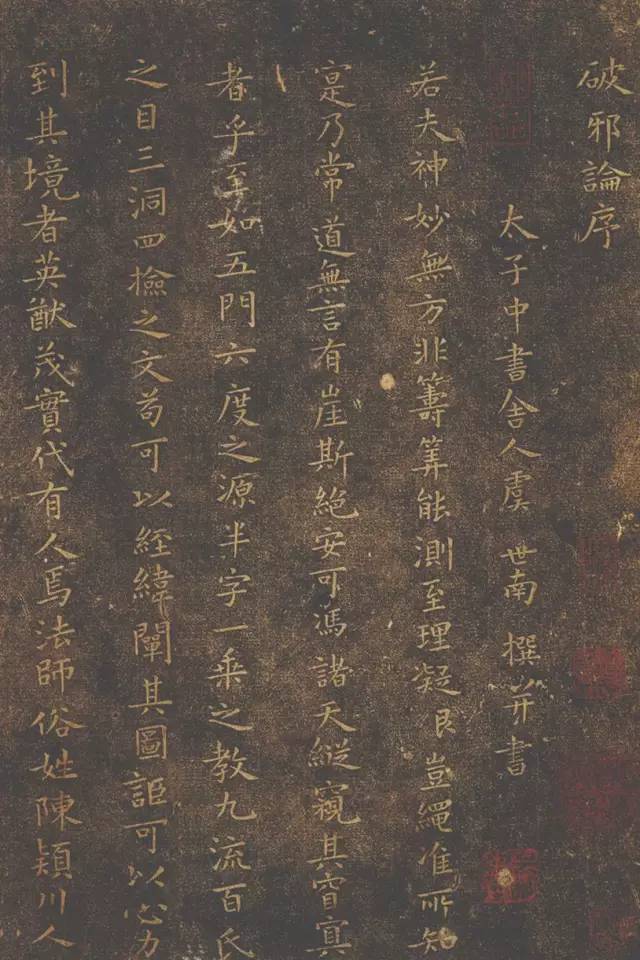 破邪論序
太子中書舍人虞世南撰并書
若夫神妙無方非籌筭能測至理凝豈繩准所知
寔乃常道無言有崖斯絕安可馮諸天縱窺其窅冥
者乎至如五門六度之源半字一乘之教九流百氏
之目三洞四撿之文苟可以經緯闡其圖詎可以心力
到其境者英猷茂實代有人焉法師俗姓陳潁川人